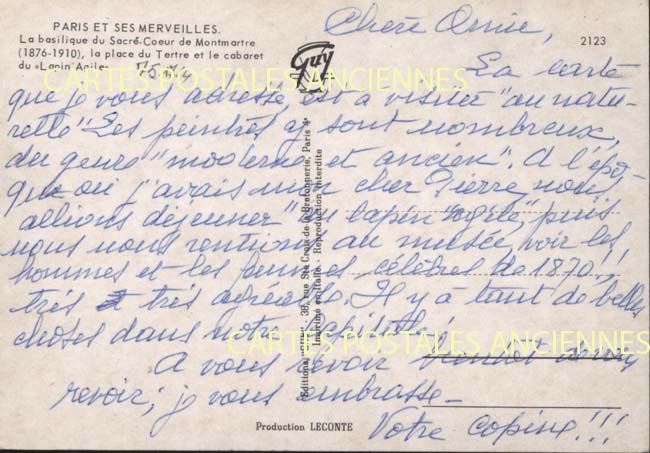 PARIS ET SES MERVEILLES.
La basilique du Sacré-Coeur de Montmartre
(1876-1910), la place du Tertre et le cabaret
du «Lapin Agile»
Guy
2123
Chère Annie,
La carte
que je vous adresse, est à visiter "au natu-
relle" Les peintres y sont nombreux,
du genre "moderne et ancien". A l'épo-
que où j'avais mon cher Pierre, nous
allions déjeuner "au lapin agile", puis
nous nous rentions au musée, voir les
hommes et les femmes célèbres de 1870,!
très très agréable. Il y à tant de belles
choses dans notre capitale!
A vous revoir bientôt
revoir; je vous embrasse-
Votre copine!!!
Editions "GUY" - 38, rue Ste Croix de la Bretonnerie, Paris 4e
Imprimé en Italie. - Reproduction interdite
Production LECONTE
CARTES POSTALES ANCIENNES
CARTES POSTALES ANCIENNES